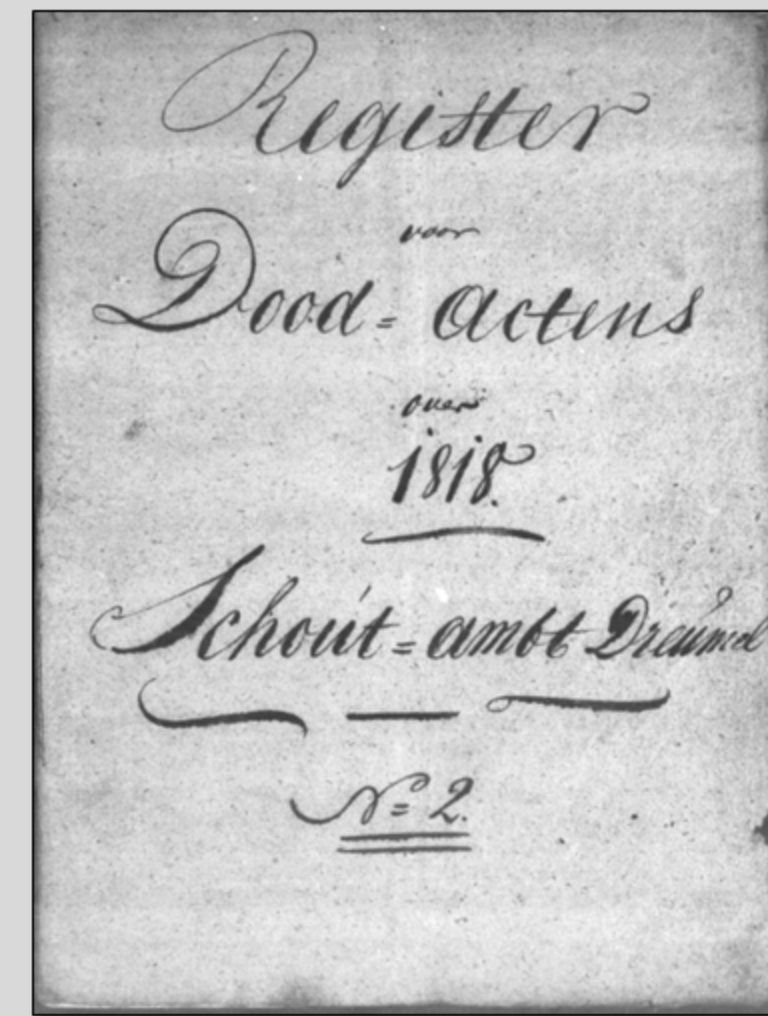 Register
voor
Dood= actens
over
1818.
Schout=ambt Dreúmel
N= 2.